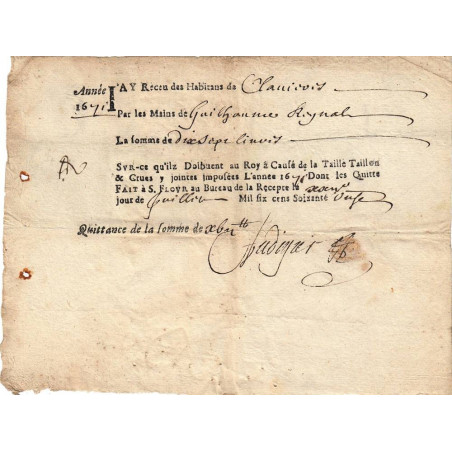 Année I'AY Receu des Habitans de Clavieres
1671 Par les Mains de Guilhaumes Reynal
La somme de dix sept livres
SVR-ce qu'ilz Doibuent au Roy à Cause de la Taille Taillon
& Crues y jointes imposées L'année 1671 Dont les Quitte
FAIT à S. FLOVR au Bureau de la Recepte le xxvje
jour de Juillet Mil six cens Soixante Unse
Quittance de la somme de xvij ₶